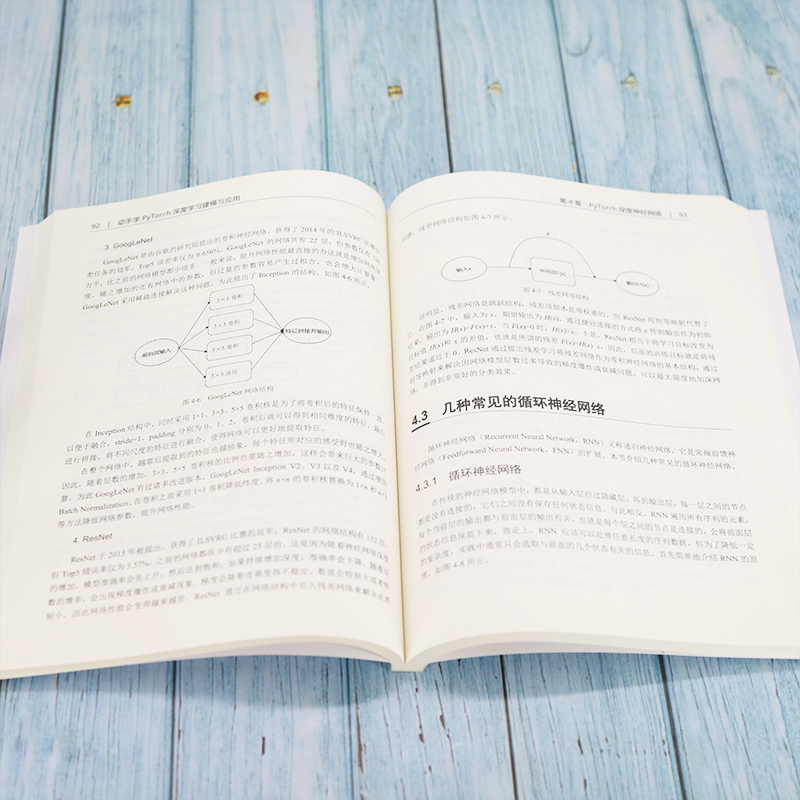 92 动手学 PyTorch 深度学习建模与应用
3. GoogLeNet
GoogLeNet 是由谷歌的研究院提出的卷积神经网络，获得了 2014 年的 ILSVRC 比赛分
类任务的冠军，Top5 误差率仅为 6.656%。GoogLeNet 的网络共有 22 层，但参数仅有
万个，比之前的网络模型都少很多。一般来说，提升网络性能最直接的办法就是增加网络深
度，随之增加的还有网络中的参数，但过量的参数容易产生过拟合，也会增大计算量，
GoogLeNet 采用稀疏连接解决这种问题，为此提出了 Inception 的结构，如图 4-6 所示。
1×1 卷积
3×3 卷积
前向层输入
特征拼接并输出
5×5 卷积
3×3 池化
图 4-6 GoogLeNet 网络结构
在 Inception 结构中，同时采用 1×1、3×3、5×5 卷积核是为了将卷积后的特征保持一致，
以便于融合，stride=1，padding 分别为 0、1、2，卷积后就可以得到相同维度的特征，最后
进行拼接，将不同尺度的特征进行融合，使得网络可以更好地提取特征。
在整个网络中，越靠后提取到的特征也越抽象，每个特征所对应的感受野也随之增大，
因此，随着层数的增加，3×3、5×5 卷积核的比例也要随之增加，这样会带来巨大的参数计
算，为此 GoogLeNet 有过诸多改进版本，GoogLeNet Inception V2、V3 以及 V4，通过增加
Batch Normalization，在卷积之前采用 1×1 卷积降低纬度，将 n×n 的卷积核替换为 1×n 和 n×1
等方法降低网络参数，提升网络性能。
4. ResNet
ResNet 于 2015 年被提出，获得了 ILSVRC 比赛的冠军，ResNet 的网络结构有 152 层，
但 Top5 错误率仅为 3.57%，之前的网络都很少有超过 25 层的，这是因为随着神经网络深度
的增加，模型准确率会先上升，然后达到饱和，如果持续增加深度，准确率会下降，随着层
数的增多，会出现梯度爆炸或衰减现象，梯度会随着连乘变得不稳定，数值会特别大或者特
别小，因此网络性能会变得越来越差，ResNet 通过在网络结构中引入残差网络来解决此类
第 4 章 PyTorch 深度神经网络 93
问题，残差网络结构如图 4-7 所示。
x
输入x
中间层F(x)
输出H(x)
图 4-7 残差网络结构
很明显，残差网络是跳跃结构，残差项原本是带权重的，但 ResNet 用恒等映射代替了
它，在图 4-7 中，输入为 x，期望输出为 H(x)，通过捷径连接的方式将 x 传到输出作为初始
结果，输出为 H(x)=F(x)+x，当 F(x)=0 时，H(x)=x，于是，ResNet 相当于将学习目标改变为
目标值 H(x)和 x 的差值，也就是所谓的残差 F(x)=H(x)-x，因此，后面的训练目标就是将残
差结果逼近于 0。ResNet 通过提出残差学习将残差网络作为卷积神经网络的基本结构，通过
恒等映射来解决因网络模型层数过多导致的梯度爆炸或衰减问题，可以最大限度地加深网
络，并得到非常好的分类效果。
4.3 几种常见的循环神经网络
循环神经网络（Recurrent Neural Network，RNN）又称递归神经网络，它是常规前馈神
经网络（Feedforward Neural Network，FNN）的扩展，本节介绍几种常见的循环神经网络。
4.3.1 循环神经网络
在传统的神经网络模型中，都是从输入层经过隐藏层，再到输出层，每一层之间的节点
都是没有连接的，它们之间没有保存任何状态信息，与此相反，RNN 遍历所有序列的元素，
每个当前层的输出都与前面层的输出有关，也就是每个层之间的节点是连接的，会将前面层
的状态信息保留下来，理论上，RNN 应该可以处理任意长度的序列数据，但为了降低一定
的复杂度，实践中通常只会选取与前面的几个状态有关的信息。首先简单地介绍 RNN 的原
理，如图 4-8 所示。